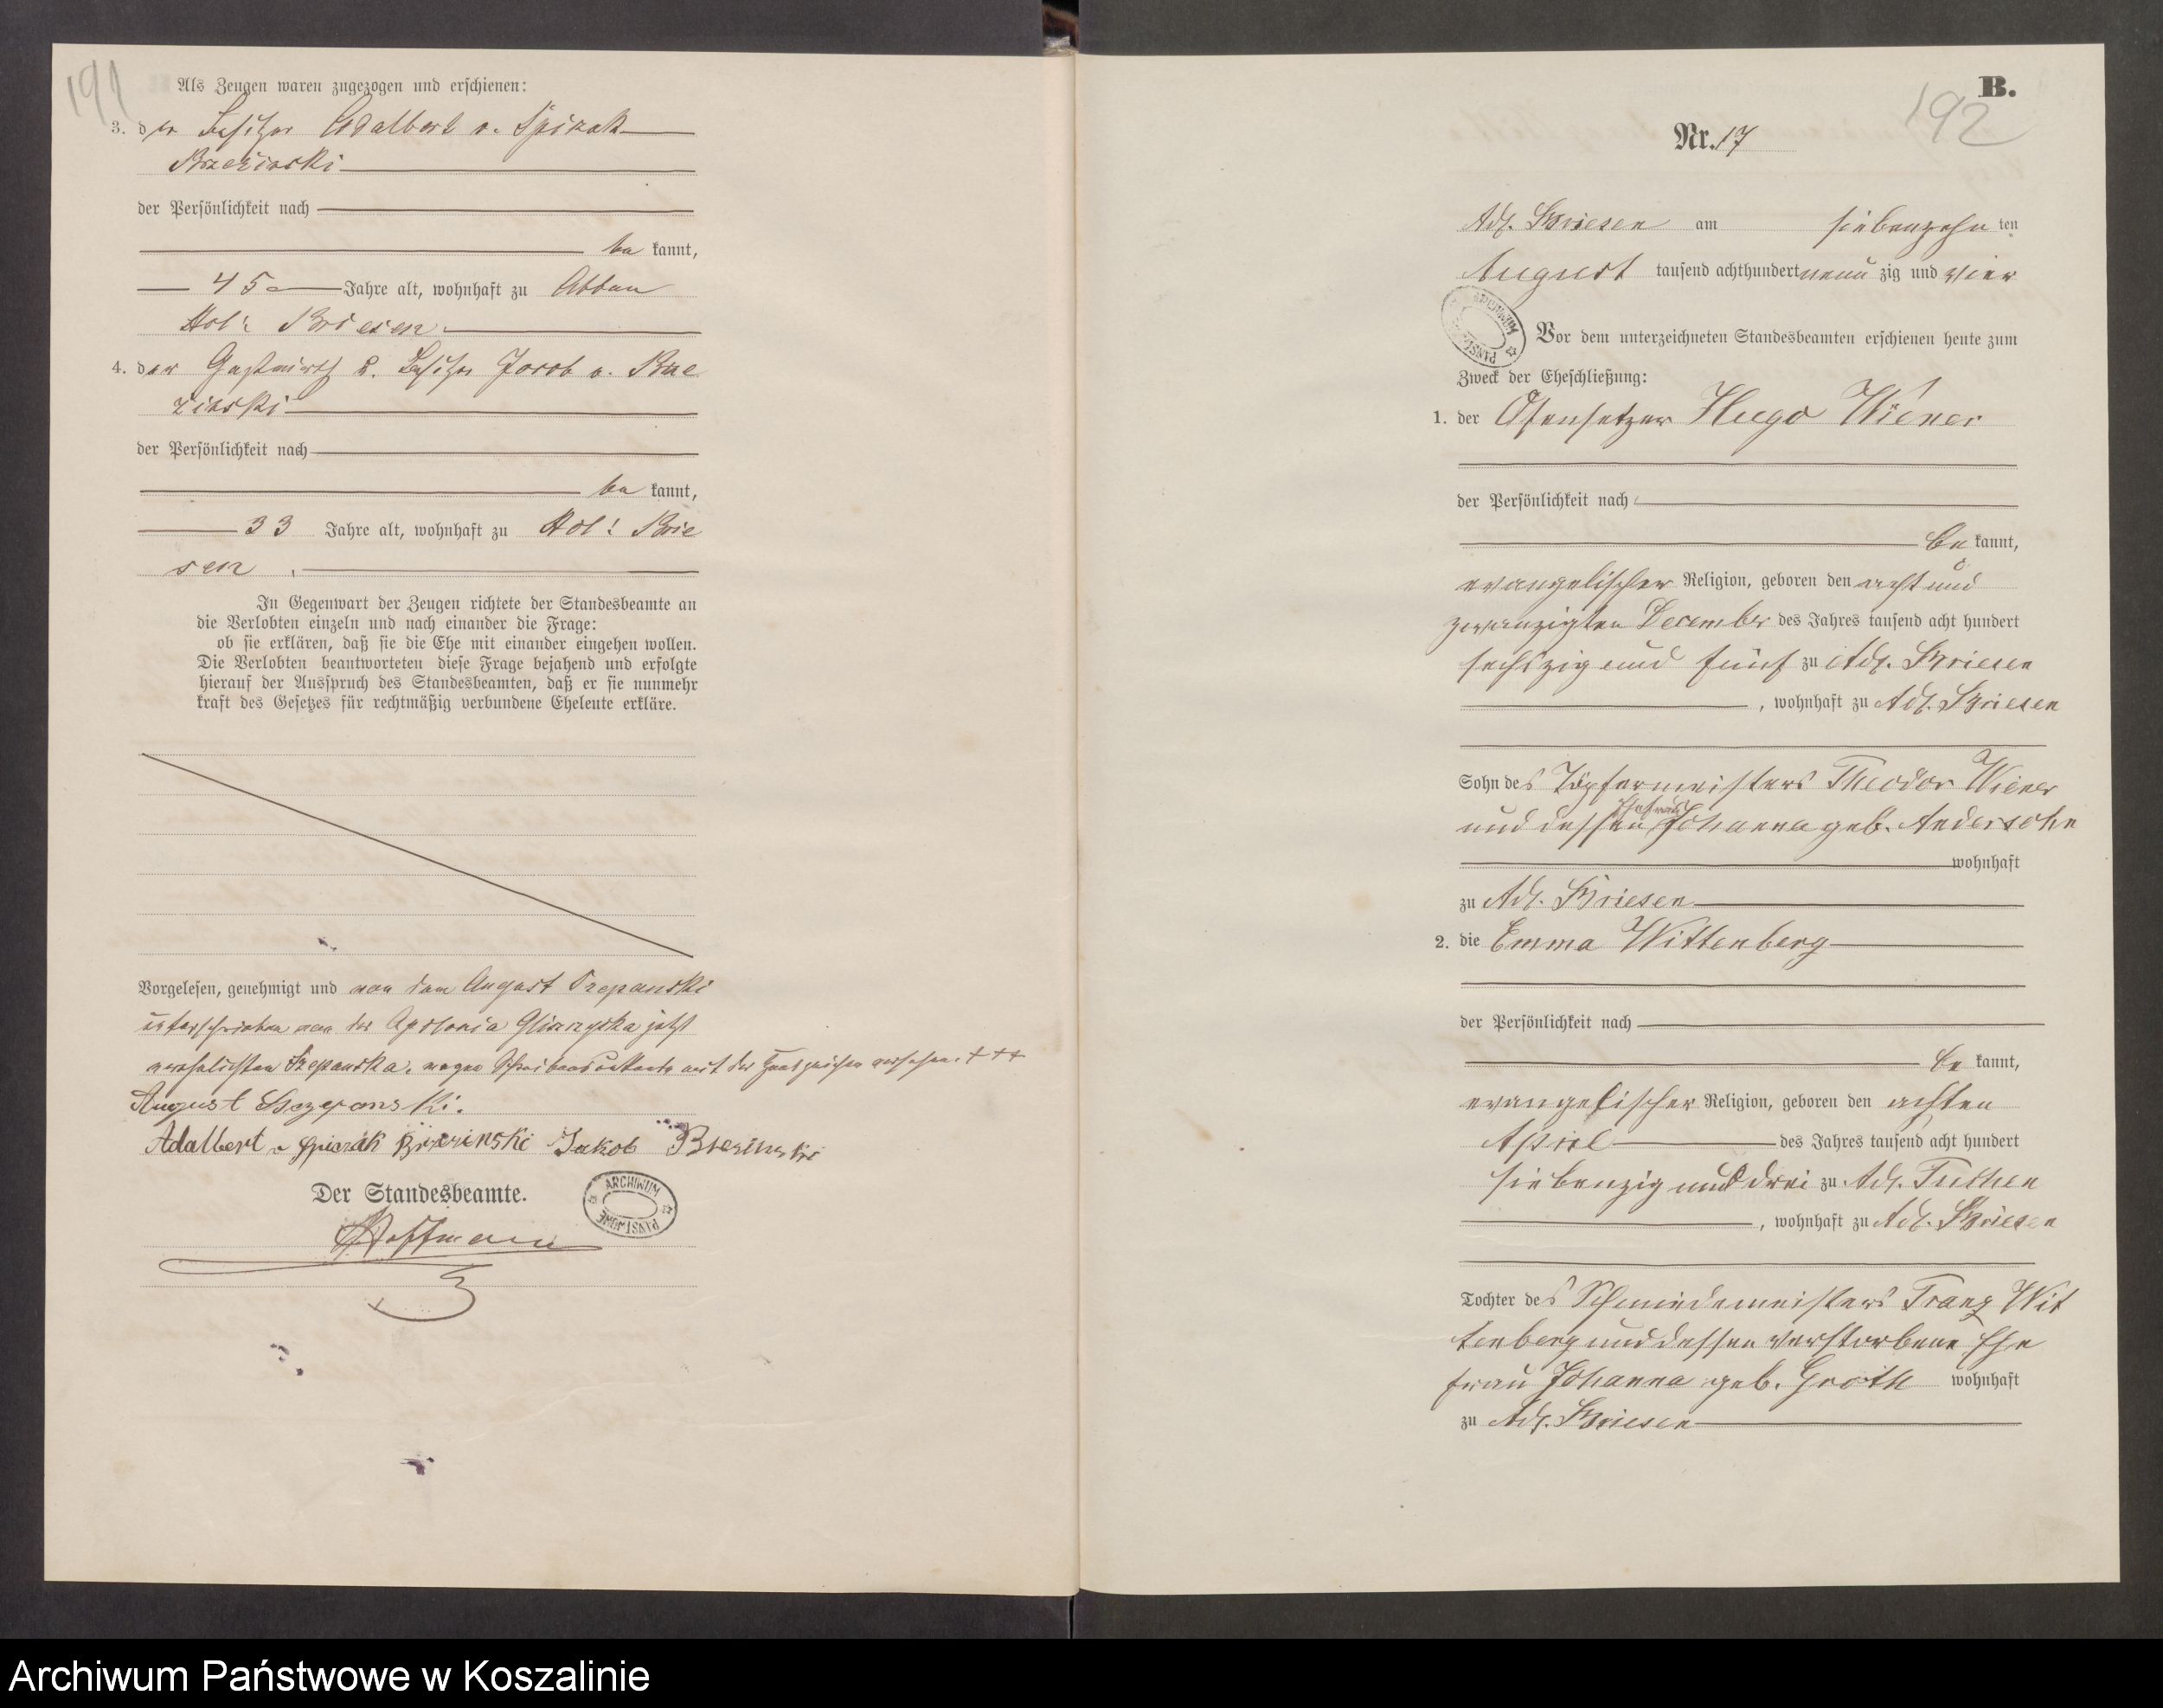 191
Als Zeugen waren zugezogen und erschienen:
3. der Besitzer Adalbert v. Spizak
Brzezinski
der Persönlichkeit nach
be kannt,
45 Jahre alt, wohnhaft zu Abbau
Adl: Briesen
4. der Gastwirth u. Besitzer Jacob v. Brze
zinski
der Persönlichkeit nach
be kannt,
33 Jahre alt, wohnhaft zu Adl: Brie
sen.
In Gegenwart der Zeugen richtete der Standesbeamte an
die Verlobten einzeln und nach einander die Frage:
ob sie erklären, daß sie die Ehe mit einander eingehen wollen.
Die Verlobten beantworteten diese Frage bejahend und erfolgte
hierauf der Ausspruch des Standesbeamten, daß er sie nunmehr
kraft des Gesetzes für rechtmäßig verbundene Eheleute erkläre.
Vorgelesen, genehmigt und von dem August Szepanski
unterschrieben von der Apolonia jetzt
verehelichten Szepanska, wegen mit der Handzeichen versehen. +++
August Szczepanski.
Adalbert v Spiczak Brzezinski Jakob Brezinski
Der Standesbeamte.
Hoffmann
ARCHIWUM PAŃSTWOWE
B.
192
Nr. 17
Adl. Briesen am siebenzehn ten
August tausend achthundert neun zig und vier
ARCHIWUM PAŃSTWOWE
Vor dem unterzeichneten Standesbeamten erschienen heute zum
Zweck der Eheschließung:
1. der Ofensetzer Hugo Wiener
der Persönlichkeit nach
be kannt,
evangelischer Religion, geboren den acht und
zwanzigsten December des Jahres tausend acht hundert
sechszig und fünf zu Adl. Briesen
, wohnhaft zu Adl. Briesen
Sohn des Töpfermeisters Theodor Wiener
und dessen Ehefrau Johanna geb. Andersohn
wohnhaft
zu Adl. Briesen
2. die Emma Wittenberg
der Persönlichkeit nach
be kannt,
evangelischer Religion, geboren den achten
April des Jahres tausend acht hundert
siebenzig und drei zu Adl. Tuchen
, wohnhaft zu Adl. Briesen
Tochter des Schmiedemeisters Franz Wit
tenberg und dessen verstorbene Ehe
frau Johanna geb. Groth wohnhaft
zu Adl. Briesen
Archiwum Państwowe w Koszalinie